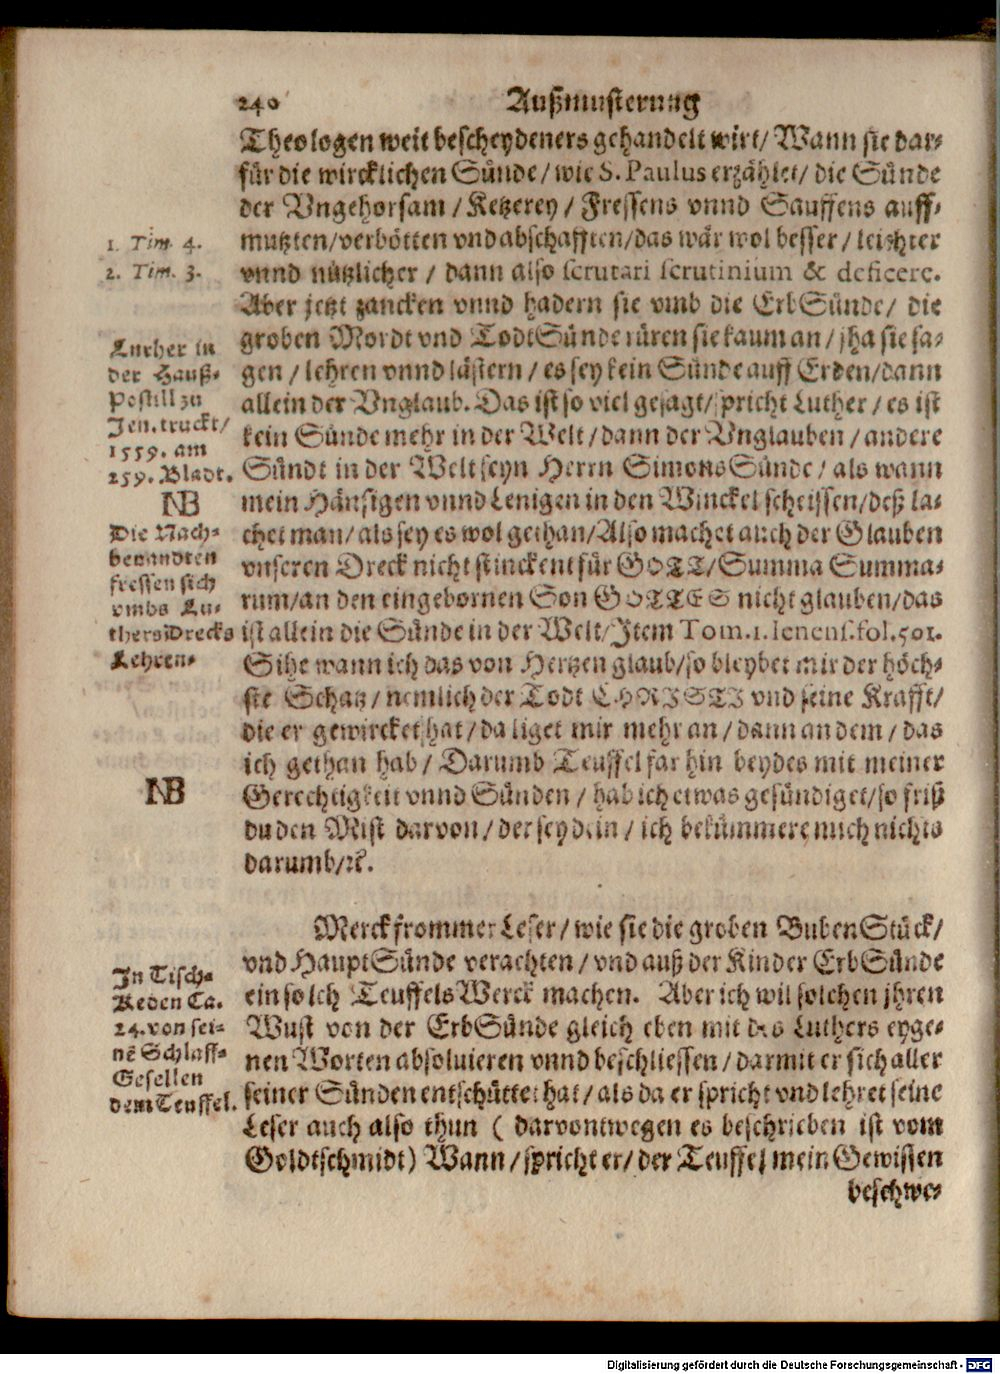 240 Außmusterung
Theologen weit bescheydeners gehandelt wirt/ Wann sie dar-
für die wircklichen Sünde/ wie S. Paulus erzählet/ die Sünde
der Vngehorsam / Ketzerey / Fressens vnnd Sauffens auff-
mutzten/verbötten vnd abschafften/das wär wol besser / leichter
vnnd nützlicher / dann also scrutari scrutinium & deficere.
Aber jetzt zancken vnnd hadern sie vmb die ErbSünde/ die
groben Mordt vnd TodtSünde rüren sie kaum an/ jha sie sa-
gen / lehren vnnd lästern / es sey kein Sünde auff Erden/dann
allein der Vnglaub. Das ist so viel gesagt/ spricht Luther / es ist
kein Sünde mehr in der Welt / dann der Vnglauben / andere
Sündt in der Welt seyn Herrn Simons Sünde / als wann
mein Hänsigen vnnd Lenigen in den Winckel scheissen/deß la-
chet man/ als sey es wol gethan/Also machet auch der Glauben
vnseren Dreck nicht stinckent für GOTT/ Summa Summa-
rum/an den eingebornen Son GOTTES nicht glauben/das
ist allein die Sünde in der Welt/ Item Tom.1. Ienens.fol.501.
Sihe wann ich das von Hertzen glaub/so bleybet mir der höch-
ste Schatz / nemlich der Todt CHRISTI vnd seine Krafft/
die er gewircket hat/ da liget mir mehr an / dann an dem / das
ich gethan hab / Darumb Teuffel far hin beydes mit meiner
Gerechtigkeit vnnd Sünden / hab ich etwas gesündiget/so friß
du den Mist darvon / der sey dein / ich bekümmere mich nichts
darumb/ꝛc.
Merck frommer Leser / wie sie die groben BubenStück/
vnd HauptSünde verachten / vnd auß der Kinder ErbSünde
ein solch TeuffelsWerck machen. Aber ich wil solchen jhren
Wust von der ErbSünde gleich eben mit des Luthers eyge-
nen Worten absoluieren vnnd beschliessen / darmit er sich aller
seiner Sünden entschüttet hat / als da er spricht vnd lehret seine
Leser auch also thun ( darvontwegen es beschrieben ist vom
Goldtschmidt) Wann / spricht er/ der Teuffel mein Gewissen
beschwe-
1. Tim. 4.
2. Tim. 3.
Luther in
der Hauß-
Postill zu
Jen. truckt/
1559. am
259. Bladt.
NB
Die Nach-
benandten
fressen sich
vmbs Lu-
thersDrecks
Lehren.
NB
In Tisch-
Reden Ca.
24. von sei-
nē Schlaff-
Gesellen
dem Teuffel.
Digitalisierung gefördert durch die Deutsche Forschungsgemeinschaft - DFG